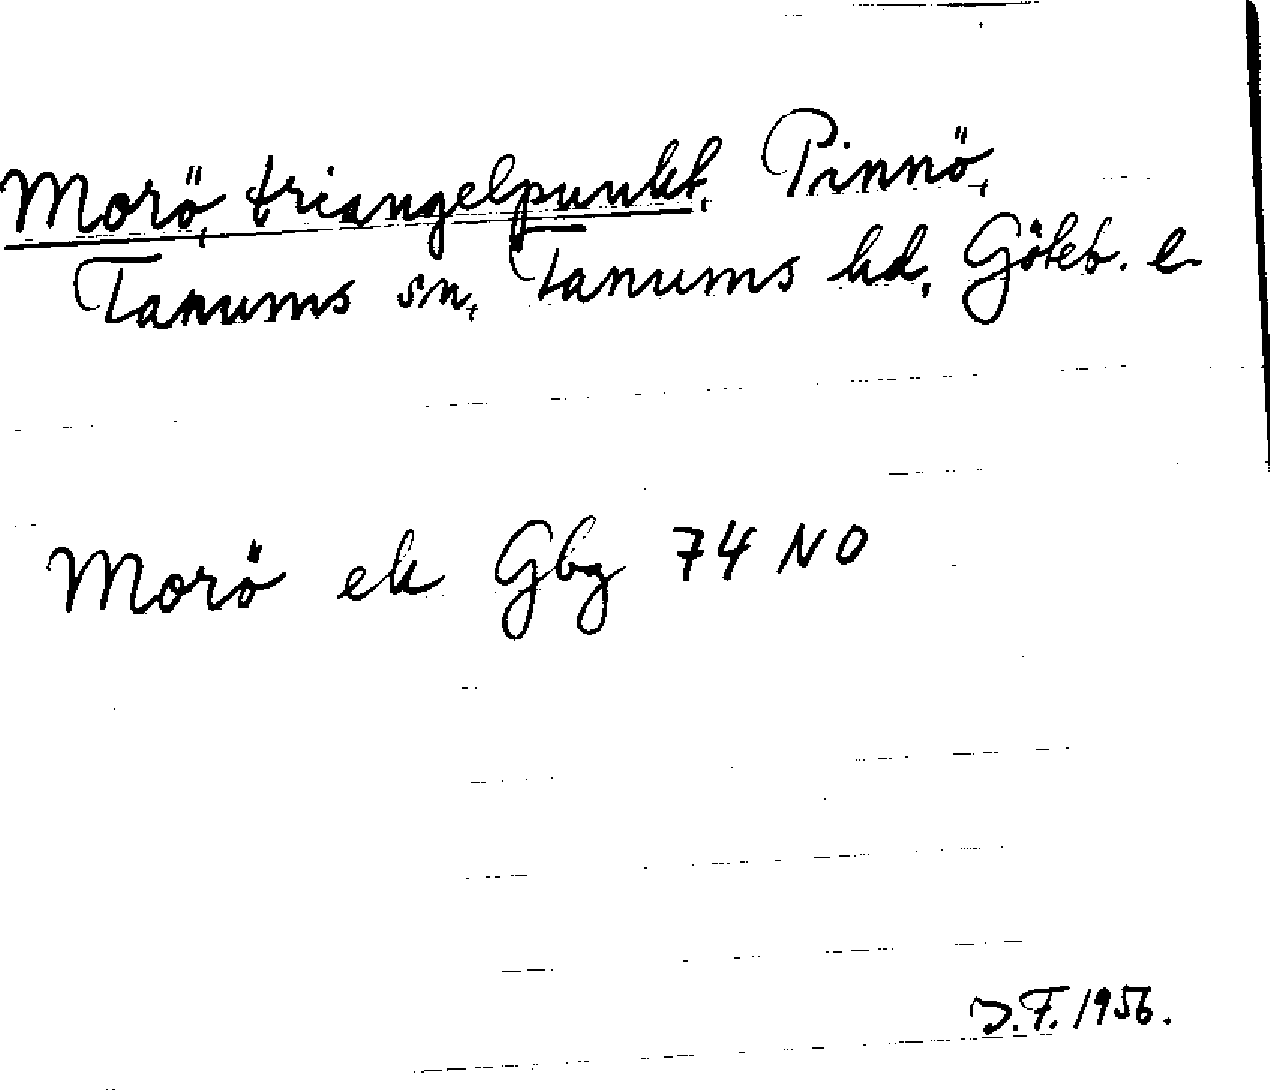 Morö, triangelpunkt, Pinnö,
Tanums sn, Tanums hd, Göteb. l.
Morö ek Gbg 74 NO
D.F. 1956.